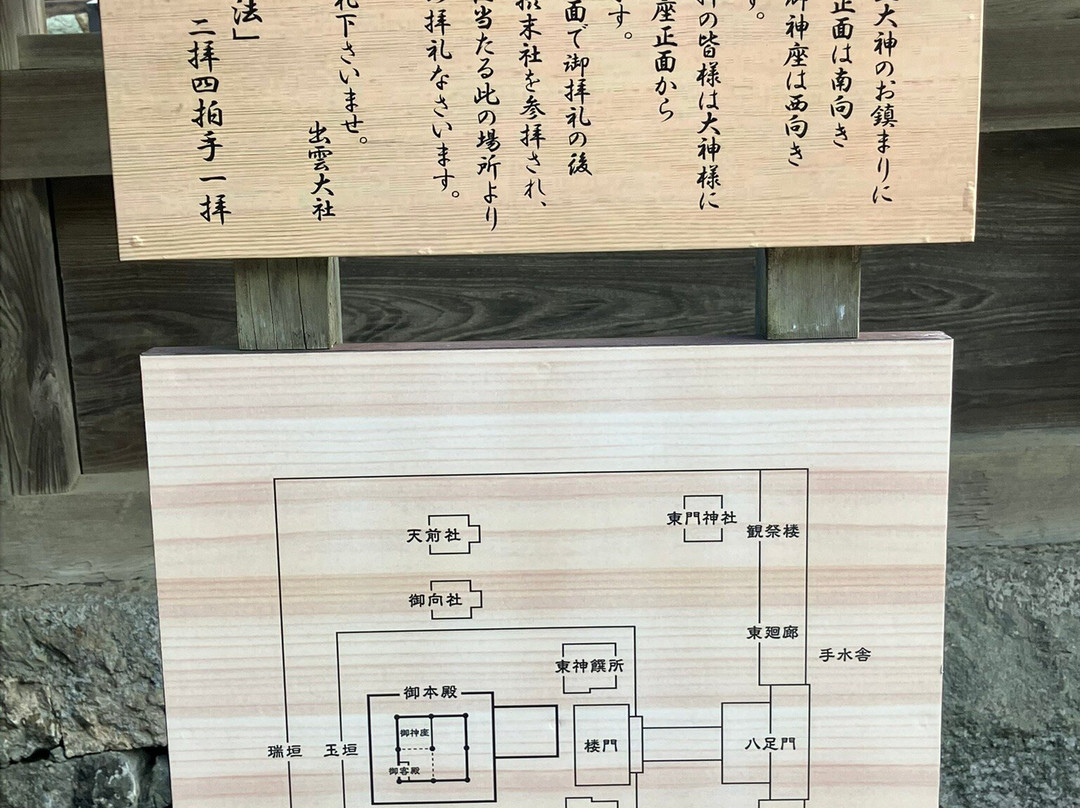 大神のお鎮まりに
正面は南向き
御神座は西向き
す。
拝の皆様は大神様に
座正面から
す。
面で御拝礼の後
摂末社を参拝され、
に当たる此の場所より
拝礼なさいます。
礼下さいませ。
出雲大社
法」
二拝四拍手一拝
天前社
東門神社
観祭楼
御向社
東廻廊
手水舎
東神饌所
御本殿
御神座
御客殿
瑞垣
玉垣
楼門
八足門